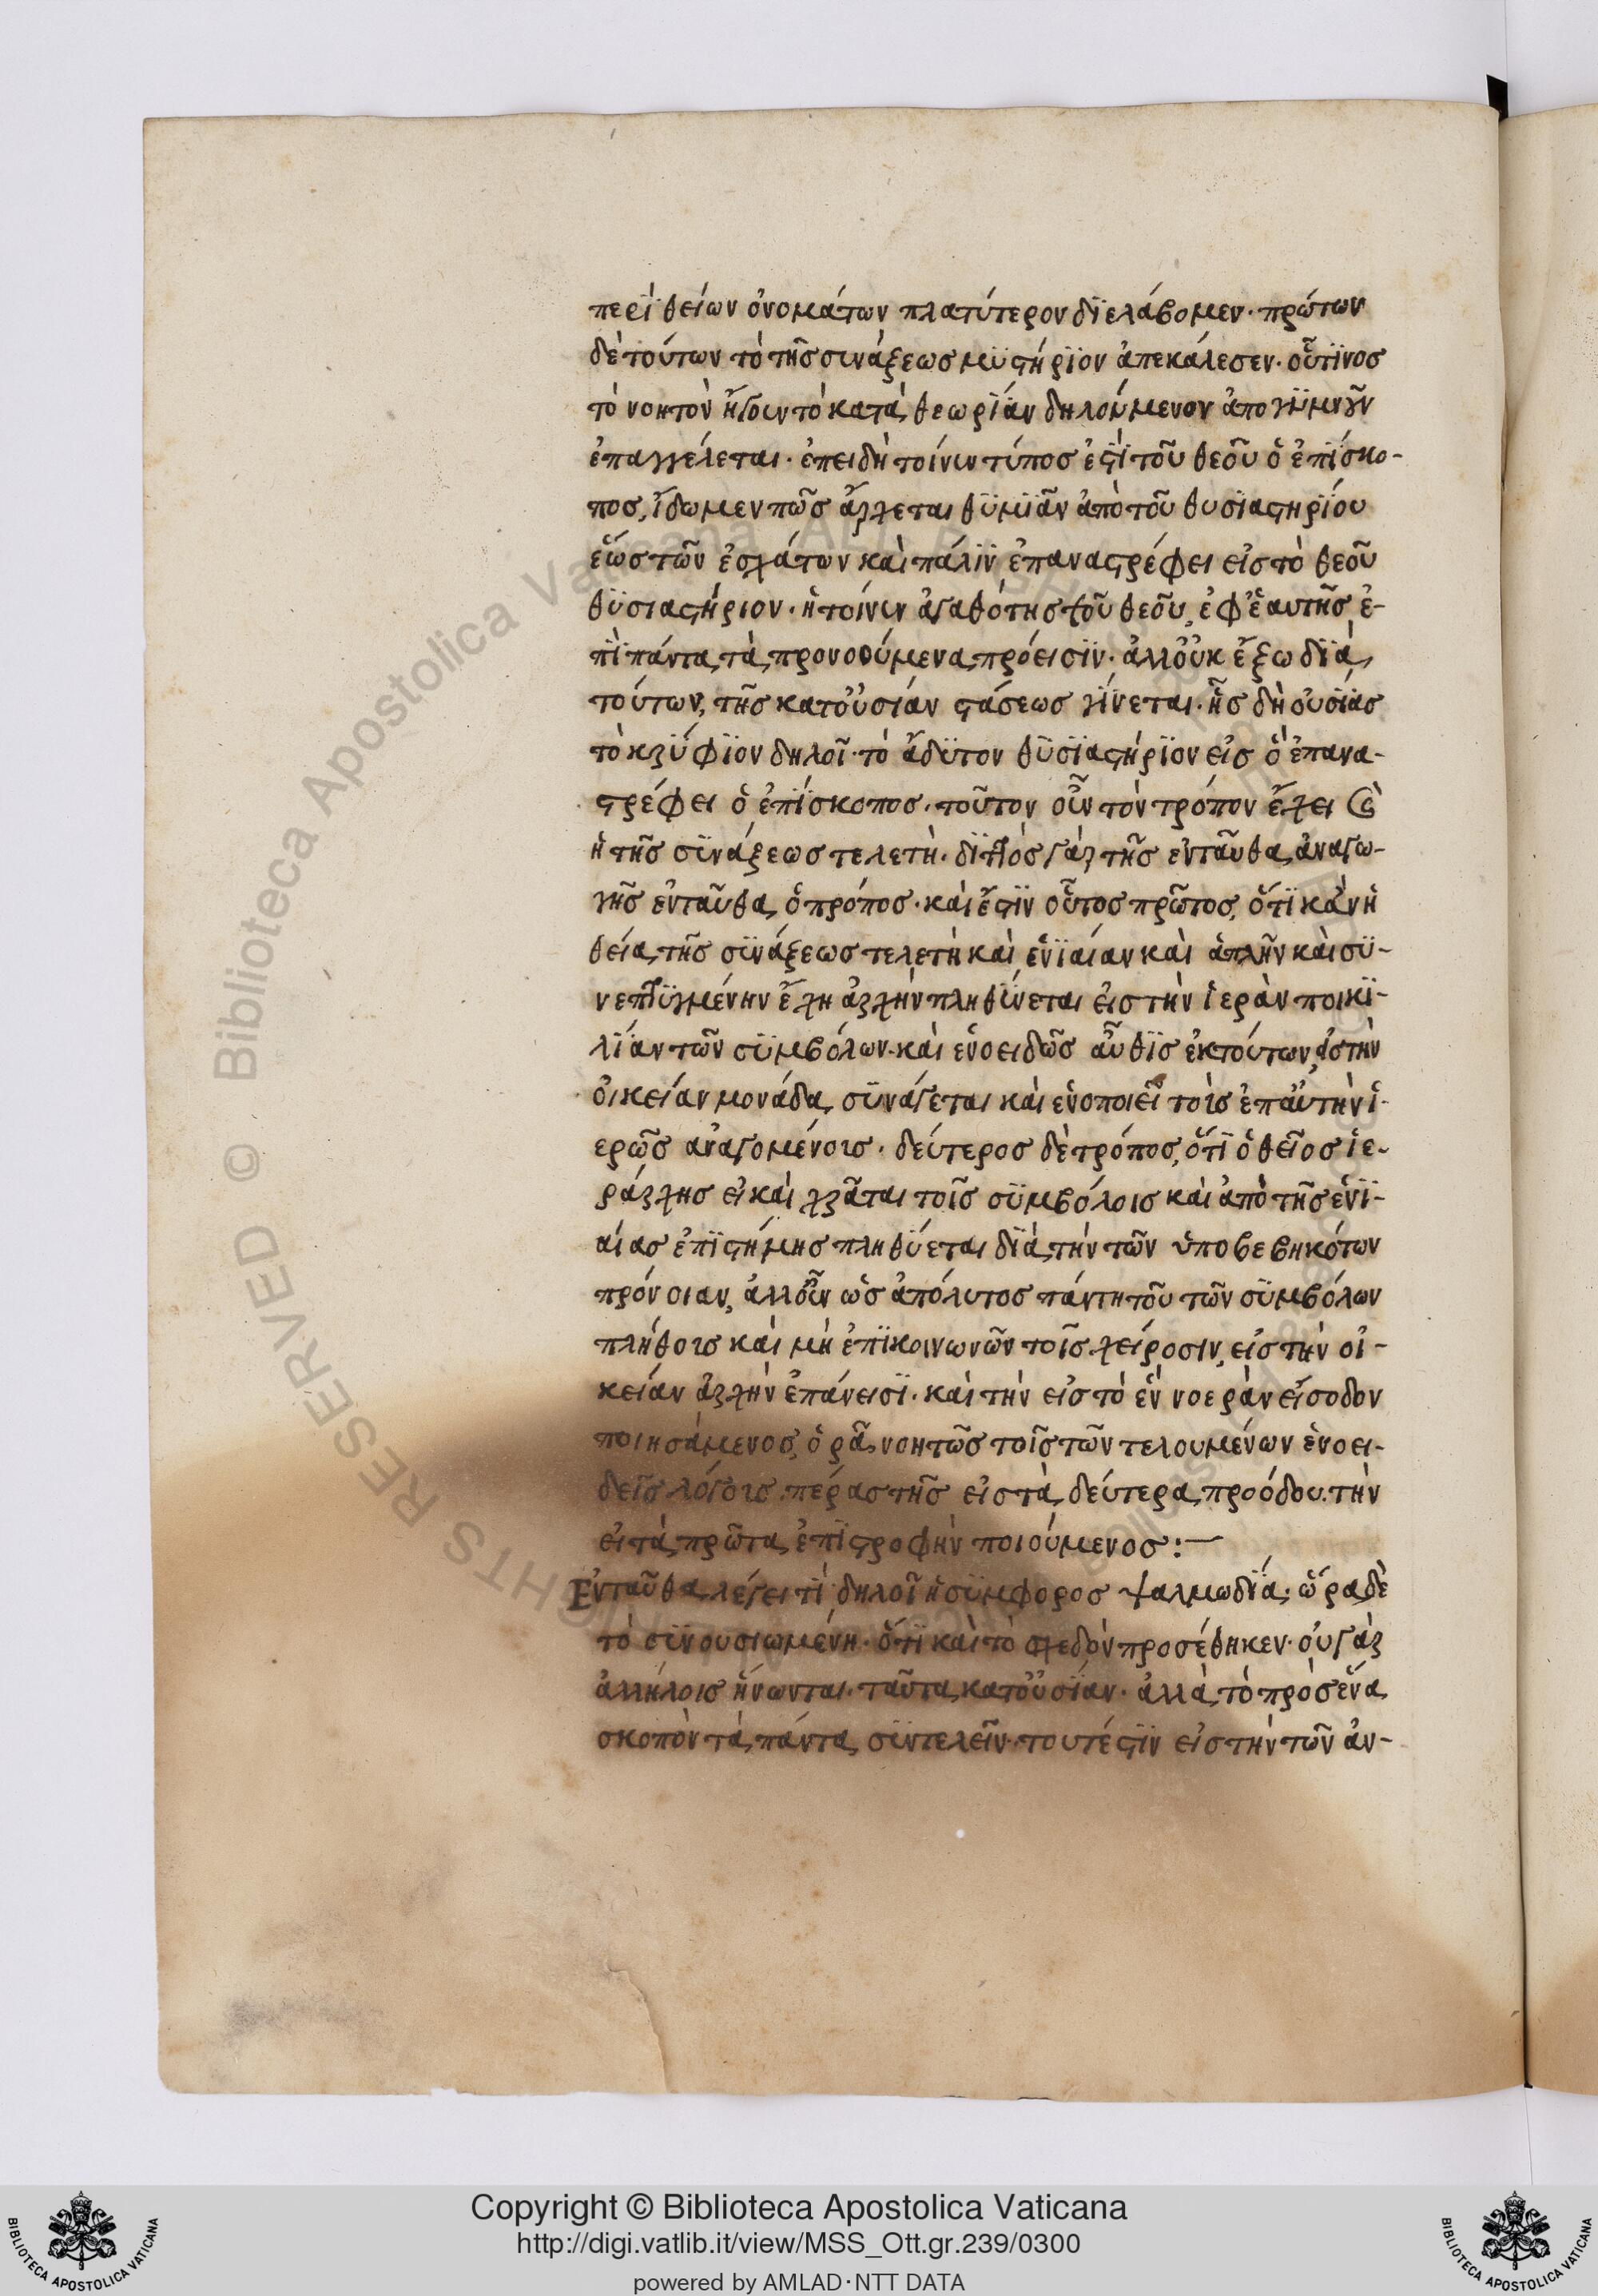 περὶ θείων ὀνομάτων πλατύτερον διελάβομεν· πρώτων
δὲ τούτων τὸ τῆς συνάξεως μυστήριον ἀπεκάλεσεν· οὗτινος
τὸ νοητὸν ἤγουν τὸ κατὰ θεωρίαν δηλούμενον ἀπογυμνοῦν
ἐπαγγέλεται· ἐπειδὴ τοίνυν τύπος ἐστὶ τοῦ θεοῦ ὁ ἐπίσκο-
πος, ἴδωμεν πῶς ἄρχεται θυμιᾶν ἀπὸ τοῦ θυσιαστηρίου
ἕως τῶν ἐσχάτων καὶ πάλιν ἐπαναστρέφει εἰς τὸ θεοῦ
θυσιαστήριον· ἡ τοίνυν ἀγαθότης τοῦ θεοῦ, ἐφ' ἑαυτῆς ἐ-
πὶ πάντα τὰ προνοούμενα πρόεισιν· ἀλλ' οὐκ ἔξω διὰ
τούτων, τῆς κατ' οὐσίαν στάσεως γίνεται· ἧς δὴ οὐσίας
τὸ κρύφιον δηλοῖ· τὸ ἄδυτον θυσιαστήριον εἰς ὃ ἐπανα-
στρέφει ὁ ἐπίσκοπος· τοῦτον οὖν τὸν τρόπον ἔχει καὶ
ἡ τῆς συνάξεως τελετή· διττὸς γὰρ τῆς ἐνταῦθα ἀναγω-
γῆς ἐνταῦθα ὁ τρόπος· καὶ ἔστιν οὗτος πρῶτος, ὅτι κἂν ἡ
θεία τῆς συνάξεως τελετὴ καὶ ἑνιαίαν καὶ ἁπλῆν καὶ συ-
νεπτυγμένην ἔχη ἀρχὴν πληθύνεται εἰς τὴν ἱερὰν ποικι-
λίαν τῶν συμβόλων· καὶ ἑνοειδῶς αὖθις ἐκ τούτων, εἰς τὴν
οἰκείαν μονάδα συνάγεται καὶ ἑνοποιεῖ τοὺς ἐπ' αὐτὴν ἱ-
ερῶς ἀναγομένους· δεύτερος δὲ τρόπος, ὅτι ὁ θεῖος ἱε-
ράρχης εἰ καὶ χρᾶται τοῖς συμβόλοις καὶ ἀπὸ τῆς ἑνι-
αίας ἐπιστήμης πληθύεται διὰ τὴν τῶν ὑποβεβηκότων
πρόνοιαν, ἀλλ' οὖν ὡς ἀπόλυτος πάντη τοῦ τῶν συμβόλων
πλήθους καὶ μὴ ἐπικοινωνῶν τοῖς χείροσιν, εἰς τὴν οἰ-
κείαν ἀρχὴν ἐπάνεισι· καὶ τὴν εἰς τὸ ἓν νοερὰν εἴσοδον
ποιησάμενος, ὁρᾶ νοητῶς τοὺς τῶν τελουμένων ἑνοει-
δεῖς λόγους· πέρας τῆς εἰς τὰ δεύτερα προόδου. τὴν
εἰ τὰ πρῶτα ἐπιστροφὴν ποιούμενος:—
Ἐνταῦθα λέγει τί δηλοῖ ἡ σύμφορος ψαλμωδία· ὥρα δὲ
τὸ συνουσιωμένη· ὅτι καὶ τὸ σχεδὸν προσέθηκεν· οὐ γὰρ
ἀλλήλοις ἥνωνται· ταῦτα κατ' οὐσίαν· ἀλλὰ τὸ πρὸς ἕνα
σκοπὸν τὰ πάντα συντελεῖν· τουτέστιν εἰς τὴν τῶν ἀν-
Copyright © Biblioteca Apostolica Vaticana
http://digi.vatlib.it/view/MSS_Ott.gr.239/0300
powered by AMLAD·NTT DATA